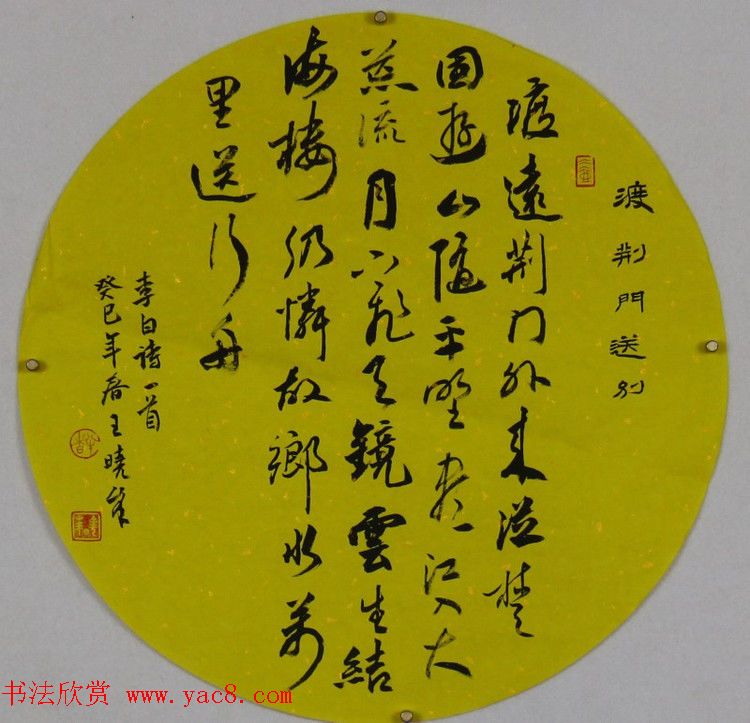 渡荆門送别
渡遠荆门外来從楚
国遊山随平野盡江入大
荒流月下飛天鏡雲生結
海楼仍憐故鄉水萬
里送行舟
李白诗一首
癸巳年春王曉
书法欣赏 www.yac8.com